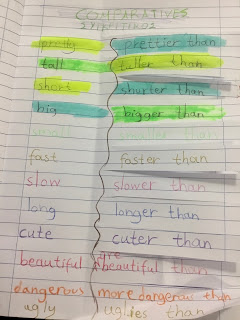 COMPARATIVES
pretty prettier than
tall taller than
short shurter than
big bigger than
smaller than
fast faster than
slow slower than
long longer than
cute cuter than
beautiful beautiful than
dangerous more dangerous than
ugly uglies than